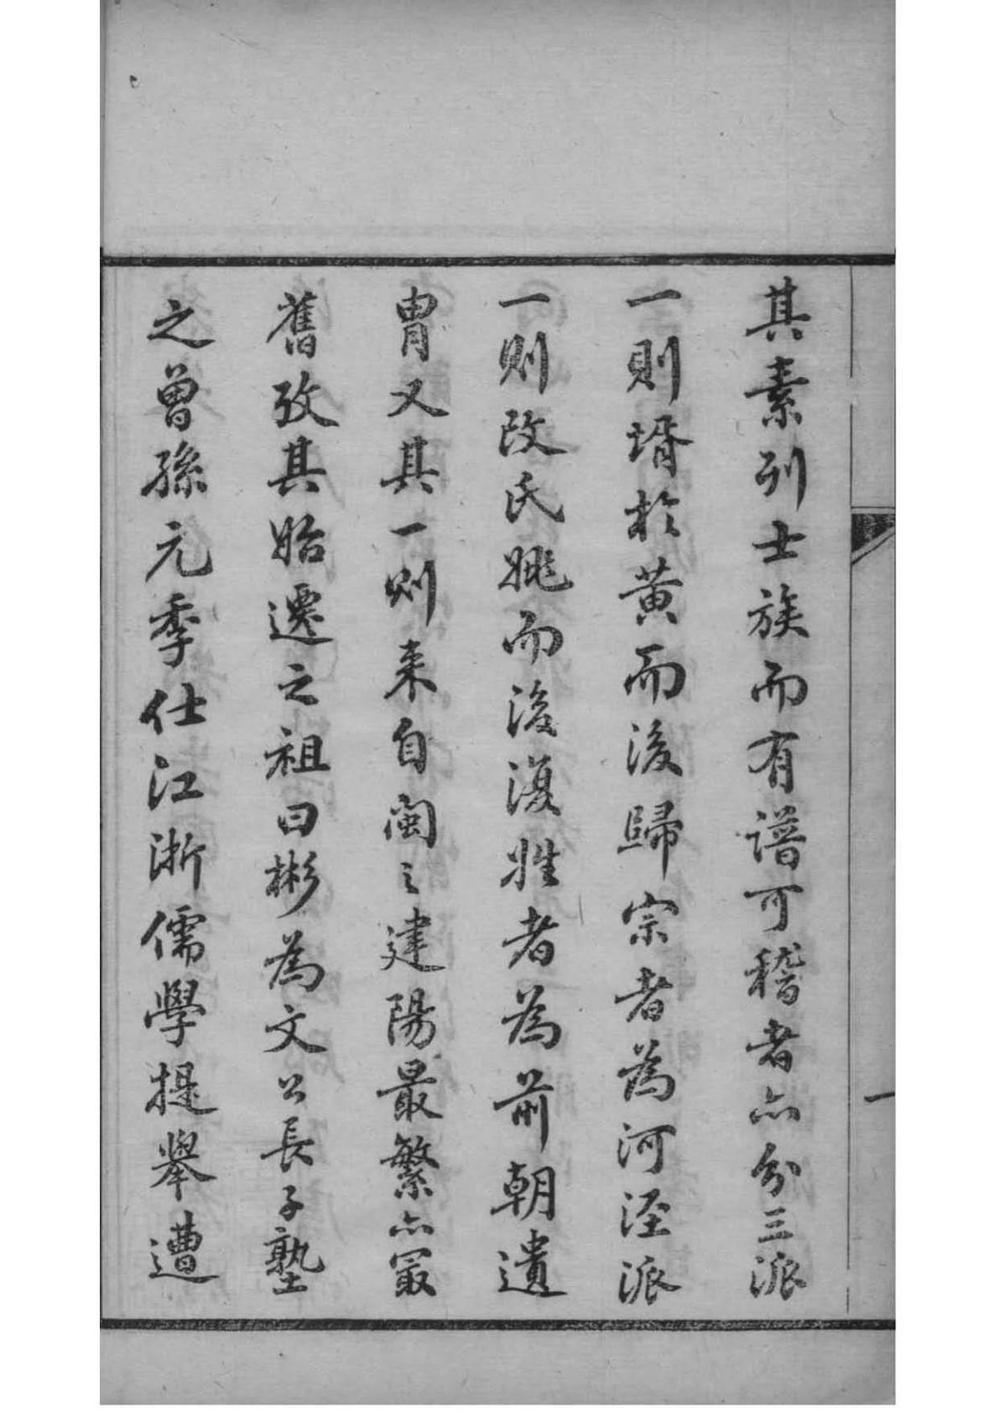 其素列士族而有譜可稽者亦分三派
一則壻於黃而後歸宗者為河涇派
一則改氏姚而後復姓者為前朝遺
冑又其一則来自閩之建陽最繁亦最
舊攷其始遷之祖曰彬為文公長子塾
之曾孫元季仕江浙儒學提舉遭
一